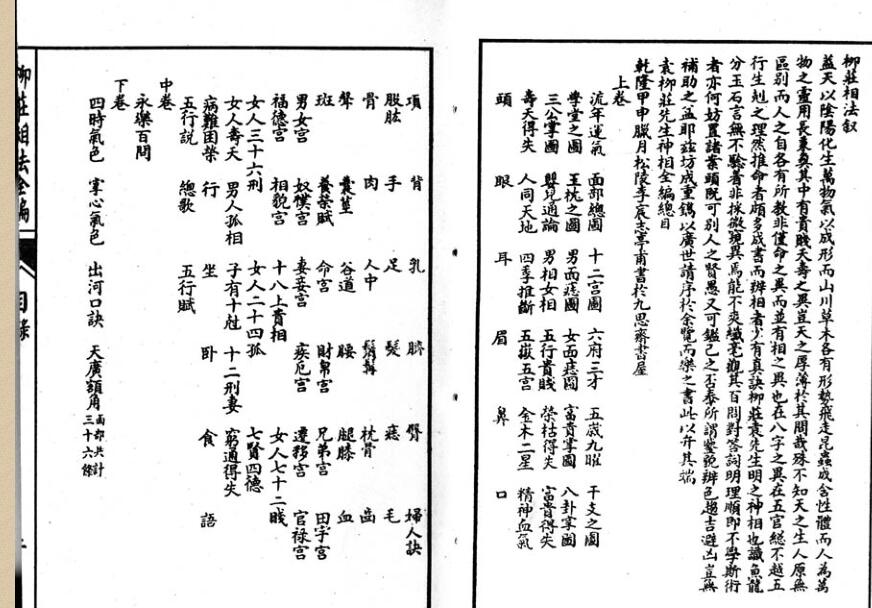 柳莊相法叙
蓋天以陰陽化生萬物氣以成形而山川草木各有形勢飛走昆蟲咸含性體而人為萬
物之靈用長東矣其中有貴賤夭壽之異豈天之厚薄於其間哉殊不知天之生人原無
區別而人之自各有所教非僅命之異而並有相之異也在八字之異在五官總不越五
行生尅之理然推命者頗多成書而辨相者少有真訣柳莊袁先生明之神相也識魚龍
分玉石言無不驗著非採微窺異馬能不爽纖毫觀其百問對答詞明理順即不學斯術
者亦何妨置諸案頭既可別人之賢愚又可鑑己之否泰所謂鑒貌辨色趨吉避凶豈無
補助之益耶茲坊成重鐫以廣世請序於余覽而樂之書此以弁其端
乾隆甲申臘月松陵李宸志亭甫書於九思齋書屋
袁柳莊先生神相全編總目
上卷
流年運氣 面部總圖 十二宮圖 六府三才 五嶽九曜 干支之圖
學堂之圖 玉枕之圖 男面痣圖 女面痣圖 富貴掌圖 八卦掌圖
三公掌圖 嬰兒通論 男相女相 五行貴賤 榮枯得失 富貴得失
壽夭得失 人同天地 四季推斷 五嶽五宮 金木二星 精神血氣
頭 眼 耳 眉 鼻 口
柳莊相法全編 目錄
項 背 乳 臍 臀 婦人訣
股肱 手 足 髮 痣 毛
骨 肉 人中 鬚髯 枕骨 齒
聲 囊莖 谷道 腰 腿膝 血
斑 養榮賦 命宮 財帛宮 兄弟宮 田宅宮
男女宮 奴僕宮 妻妾宮 疾厄宮 遷移宮 官祿宮
福德宮 相貌宮 十八上貴相 女人七十二賤
女人三十六刑 女人二十四孤 七賢四德
女人壽夭 男人孤相 子有十尅 十二刑妻 窮通得失
病難困榮 行 坐 卧 食 語
五行說 總歌 五行賦
中卷
永樂百問
下卷
四時氣色 掌心氣色 出河口訣 天廣額角面部共計三十六條